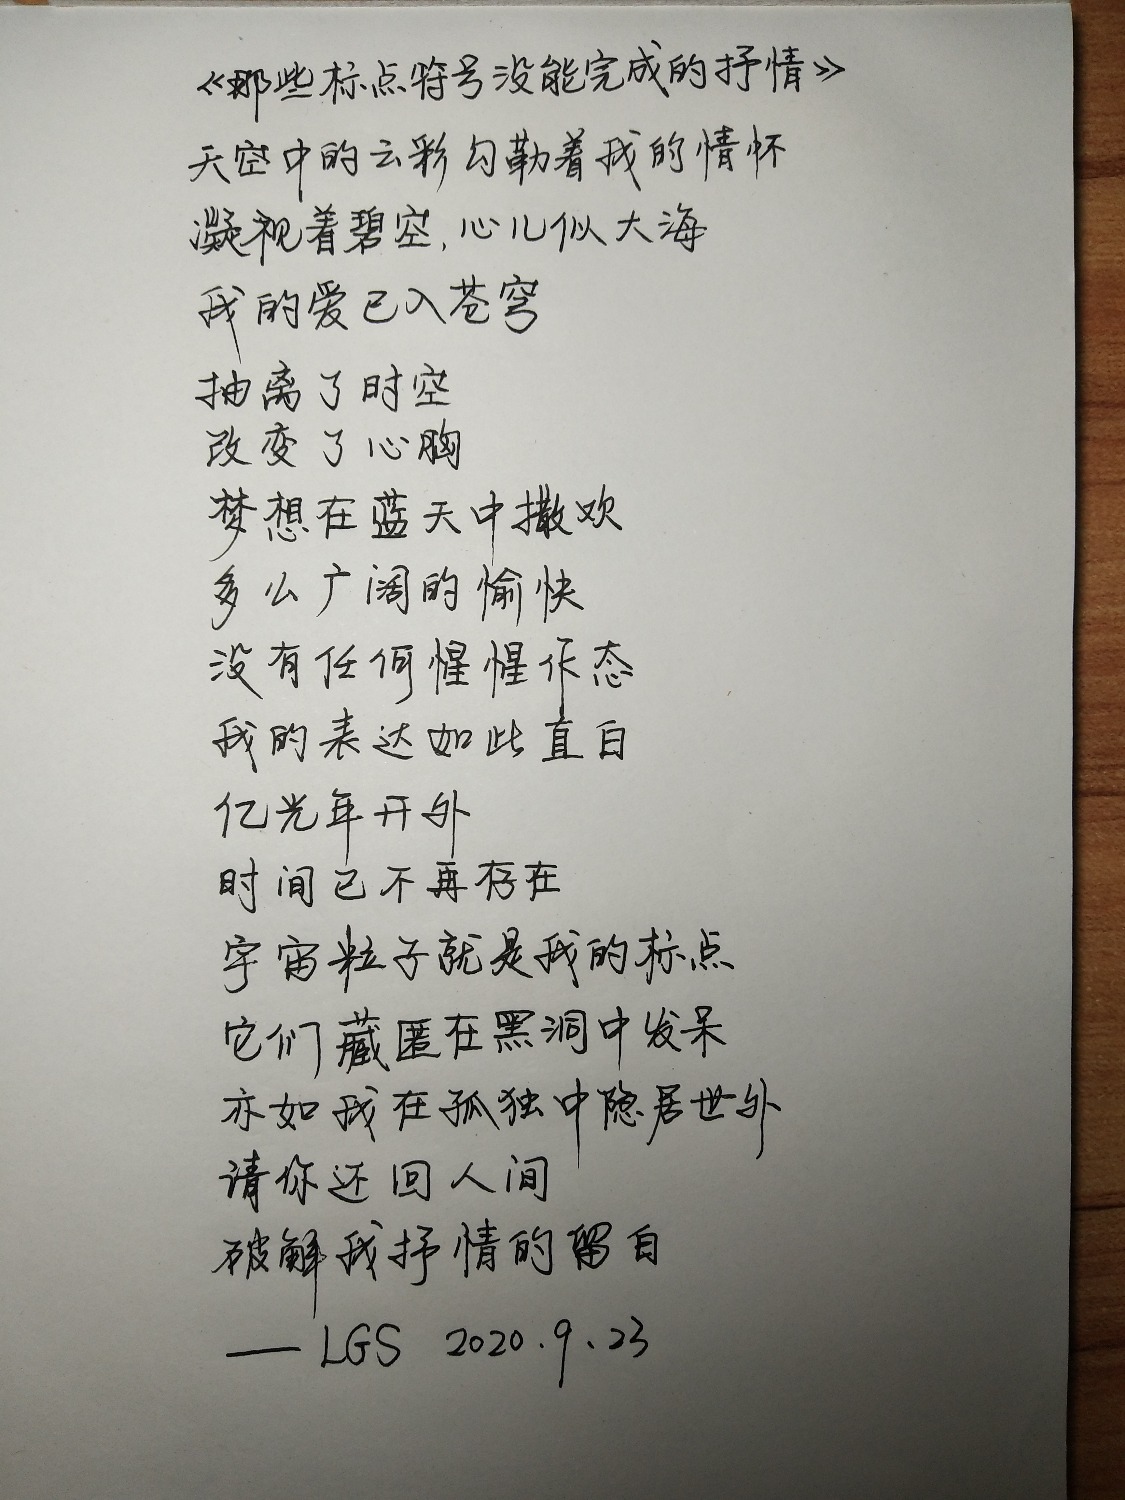 《那些标点符号没能完成的抒情》
天空中的云彩勾勒着我的情怀
凝视着碧空,心儿似大海
我的爱已入苍穹
抽离了时空
改变了心胸
梦想在蓝天中撒欢
多么广阔的愉快
没有任何惺惺作态
我的表达如此直白
亿光年开外
时间已不再存在
宇宙粒子就是我的标点
它们藏匿在黑洞中发呆
亦如我在孤独中隐居世外
请你还回人间
破解我抒情的留白
—LGS 2020.9.23